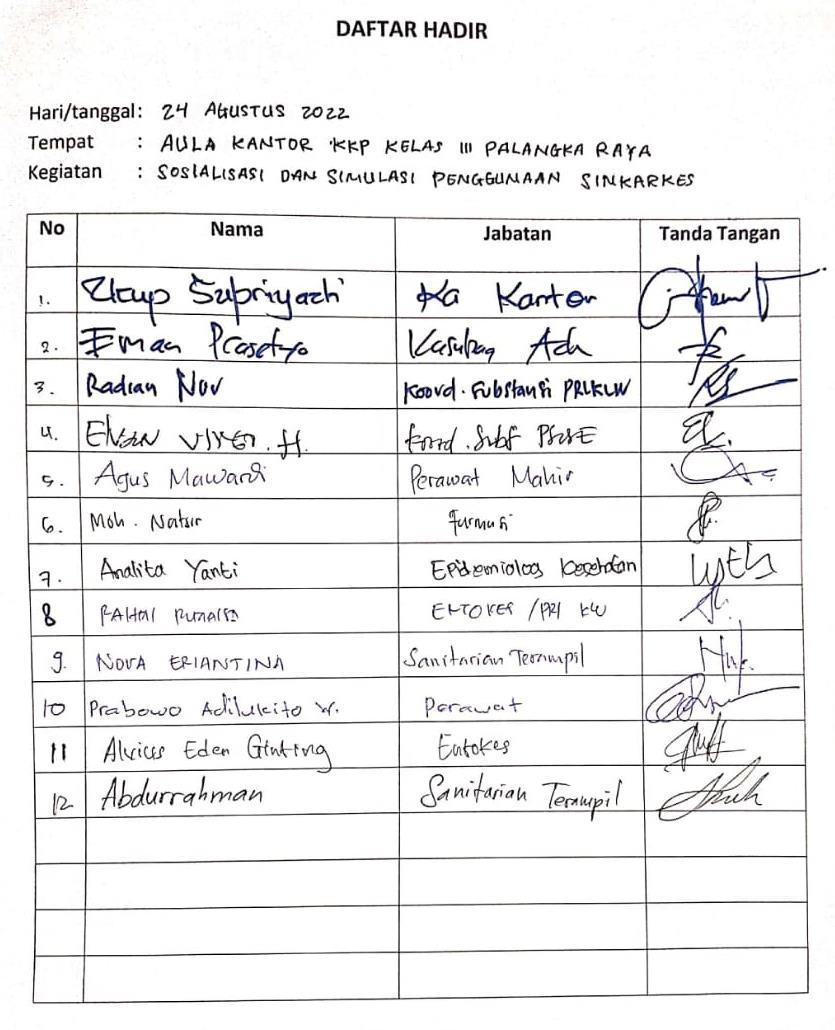 DAFTAR HADIR
Hari/tanggal: 24 AGUSTUS 2022
Tempat : AULA KANTOR KKP KELAS III PALANGKA RAYA
Kegiatan : SOSIALISASI DAN SIMULASI PENGGUNAAN SINKARKES
No Nama Jabatan Tanda Tangan
1. Ucup Supriyadi Ka Kantor
2. Iman Prasetyo Kasubag Adm
3. Radian Nov Koord. Substansi PRLKLW
4. H. Koord. Subs
5. Agus Mawardi Perawat Mahir
6. Moh. Natsir Farmasi
7. Analita Yanti Epidemiolog Kesehatan
8 ENTOKES / PRL KW
9. NOVA ERIANTINA Sanitarian Terampil
10 Prabowo Adilukito W. Perawat
11 Eden Ginting Entokes
12 Abdurrahman Sanitarian Terampil